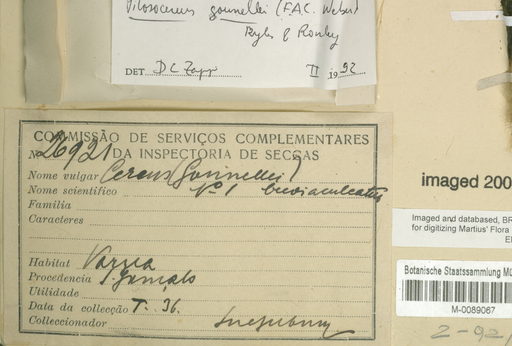 Pilosocereus gounellei (F.A.C. Weber)
Byles & Rowley
DET DC Zappi II 1992
COMMISSÃO DE SERVIÇOS COMPLEMENTARES
No 26921 DA INSPECTORIA DE SECCAS
Nome vulgar Cereus (Gounellei)
Nome scientifico No 1 breviaculeatus
Familia
Caracteres
Habitat Varzea
Procedencia S. Gonçalo
Utilidade
Data da collecção 7. 36.
Colleccionador Luetzelburg
imaged 200
Imaged and databased, BR
for digitizing Martius' Flora
Botanische Staatssammlung Mü
M-0089067